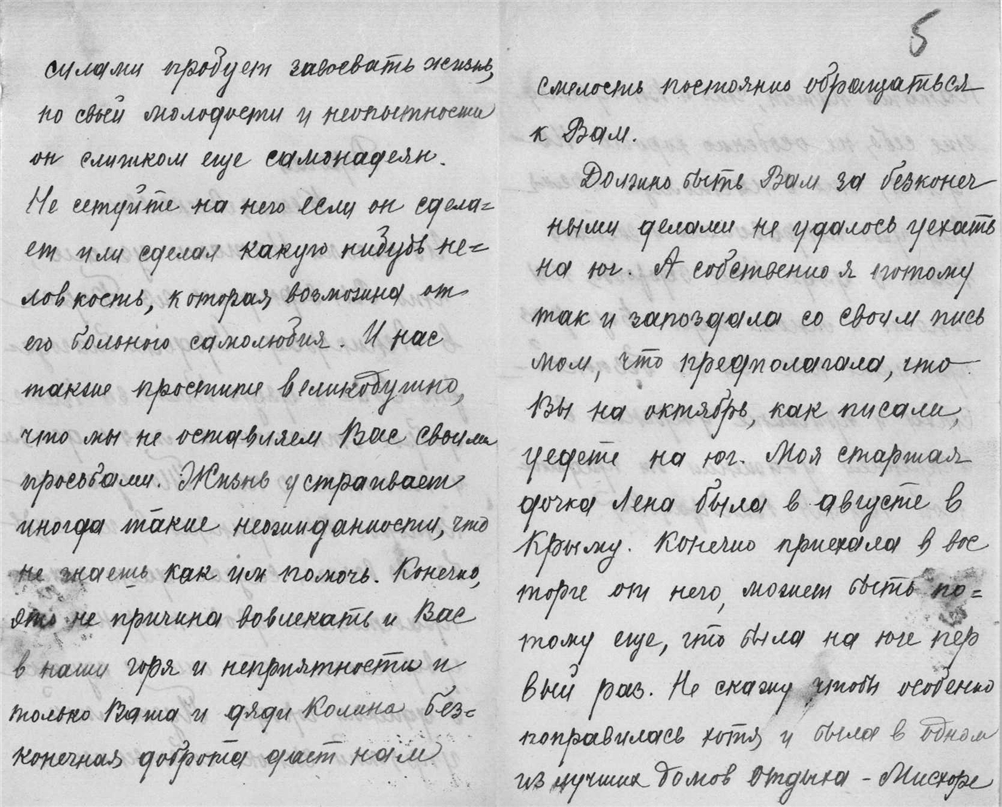 силами пробует завоевать жизнь,
но своей молодости и неопытности
он слишком еще самонадеян.
Не сетуйте на него если он сдела=
ет или сделал какую нибудь не=
ловкость, которая возможна от
его больного самолюбия. И нас
также простите великодушно,
что мы не оставляем Вас своими
просьбами. Жизнь устраивает
иногда такие неожиданности, что
не знаешь как им помочь. Конечно,
это не причина вовлекать и Вас
в наши горя и неприятности и
только Ваша и дяди Колина без=
конечная доброта дает нам
5
смелость постоянно обращаться
к Вам.
Должно быть Вам за безконеч
ными делами не удалось уехать
на юг. А собственно я потому
так и запоздала со своим пись
мом, что предполагала, что
Вы на октябрь, как писали,
уедете на юг. Моя старшая
дочка Лена была в августе в
Крыму. Конечно приехала в вос
торге от него, может быть по=
тому еще, что была на юге пер
вый раз. Не скажу чтобы особенно
поправилась хотя и была в одном
из лучших домов отдыха – Мисхоре